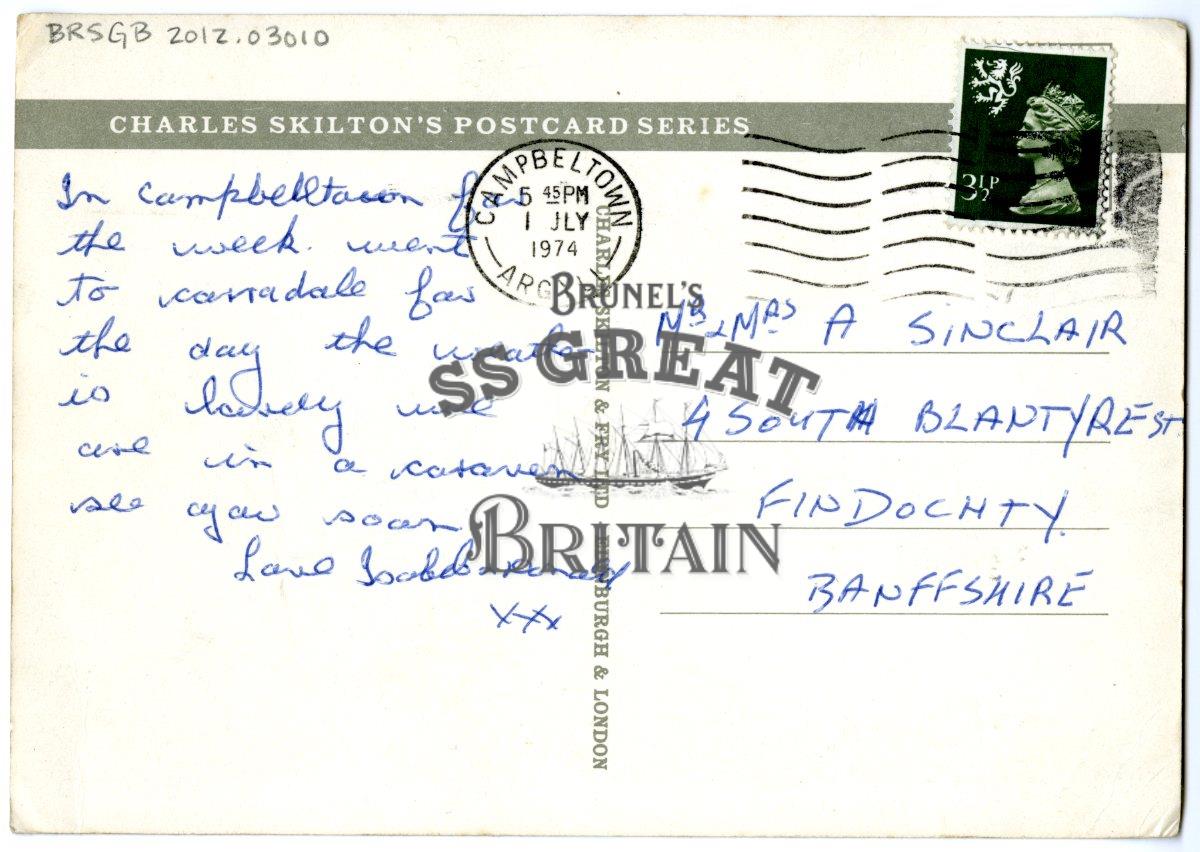 BRSGB 2012.03010
CHARLES SKILTON'S POSTCARD SERIES
3½P
CAMPBELTOWN
5 45PM
1 JLY
1974
ARG
In Campbelltown for
the week. went
to carradale for
the day the weather
is lovely we
are in a caravan
see you soon
Love Isobel
xxx
CHARLES SKILTON & FRY LTD EDINBURGH & LONDON
BRUNEL'S
SS GREAT
BRITAIN
Mr & Mrs A SINCLAIR
4 SOUTH BLANTYRE ST
FINDOCHTY.
BANFFSHIRE